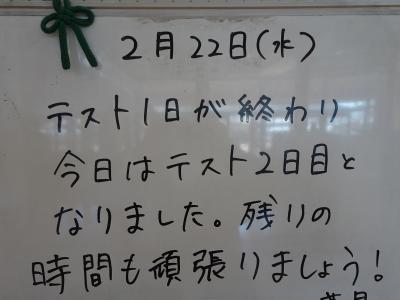 2月22日(水)
テスト1日が終わり
今日はテスト2日目と
なりました。残りの
時間も頑張りましょう!